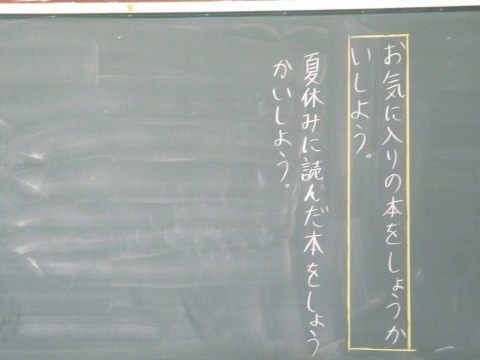 お気に入りの本をしょうか
いしよう。
夏休みに読んだ本をしょう
かいしよう。